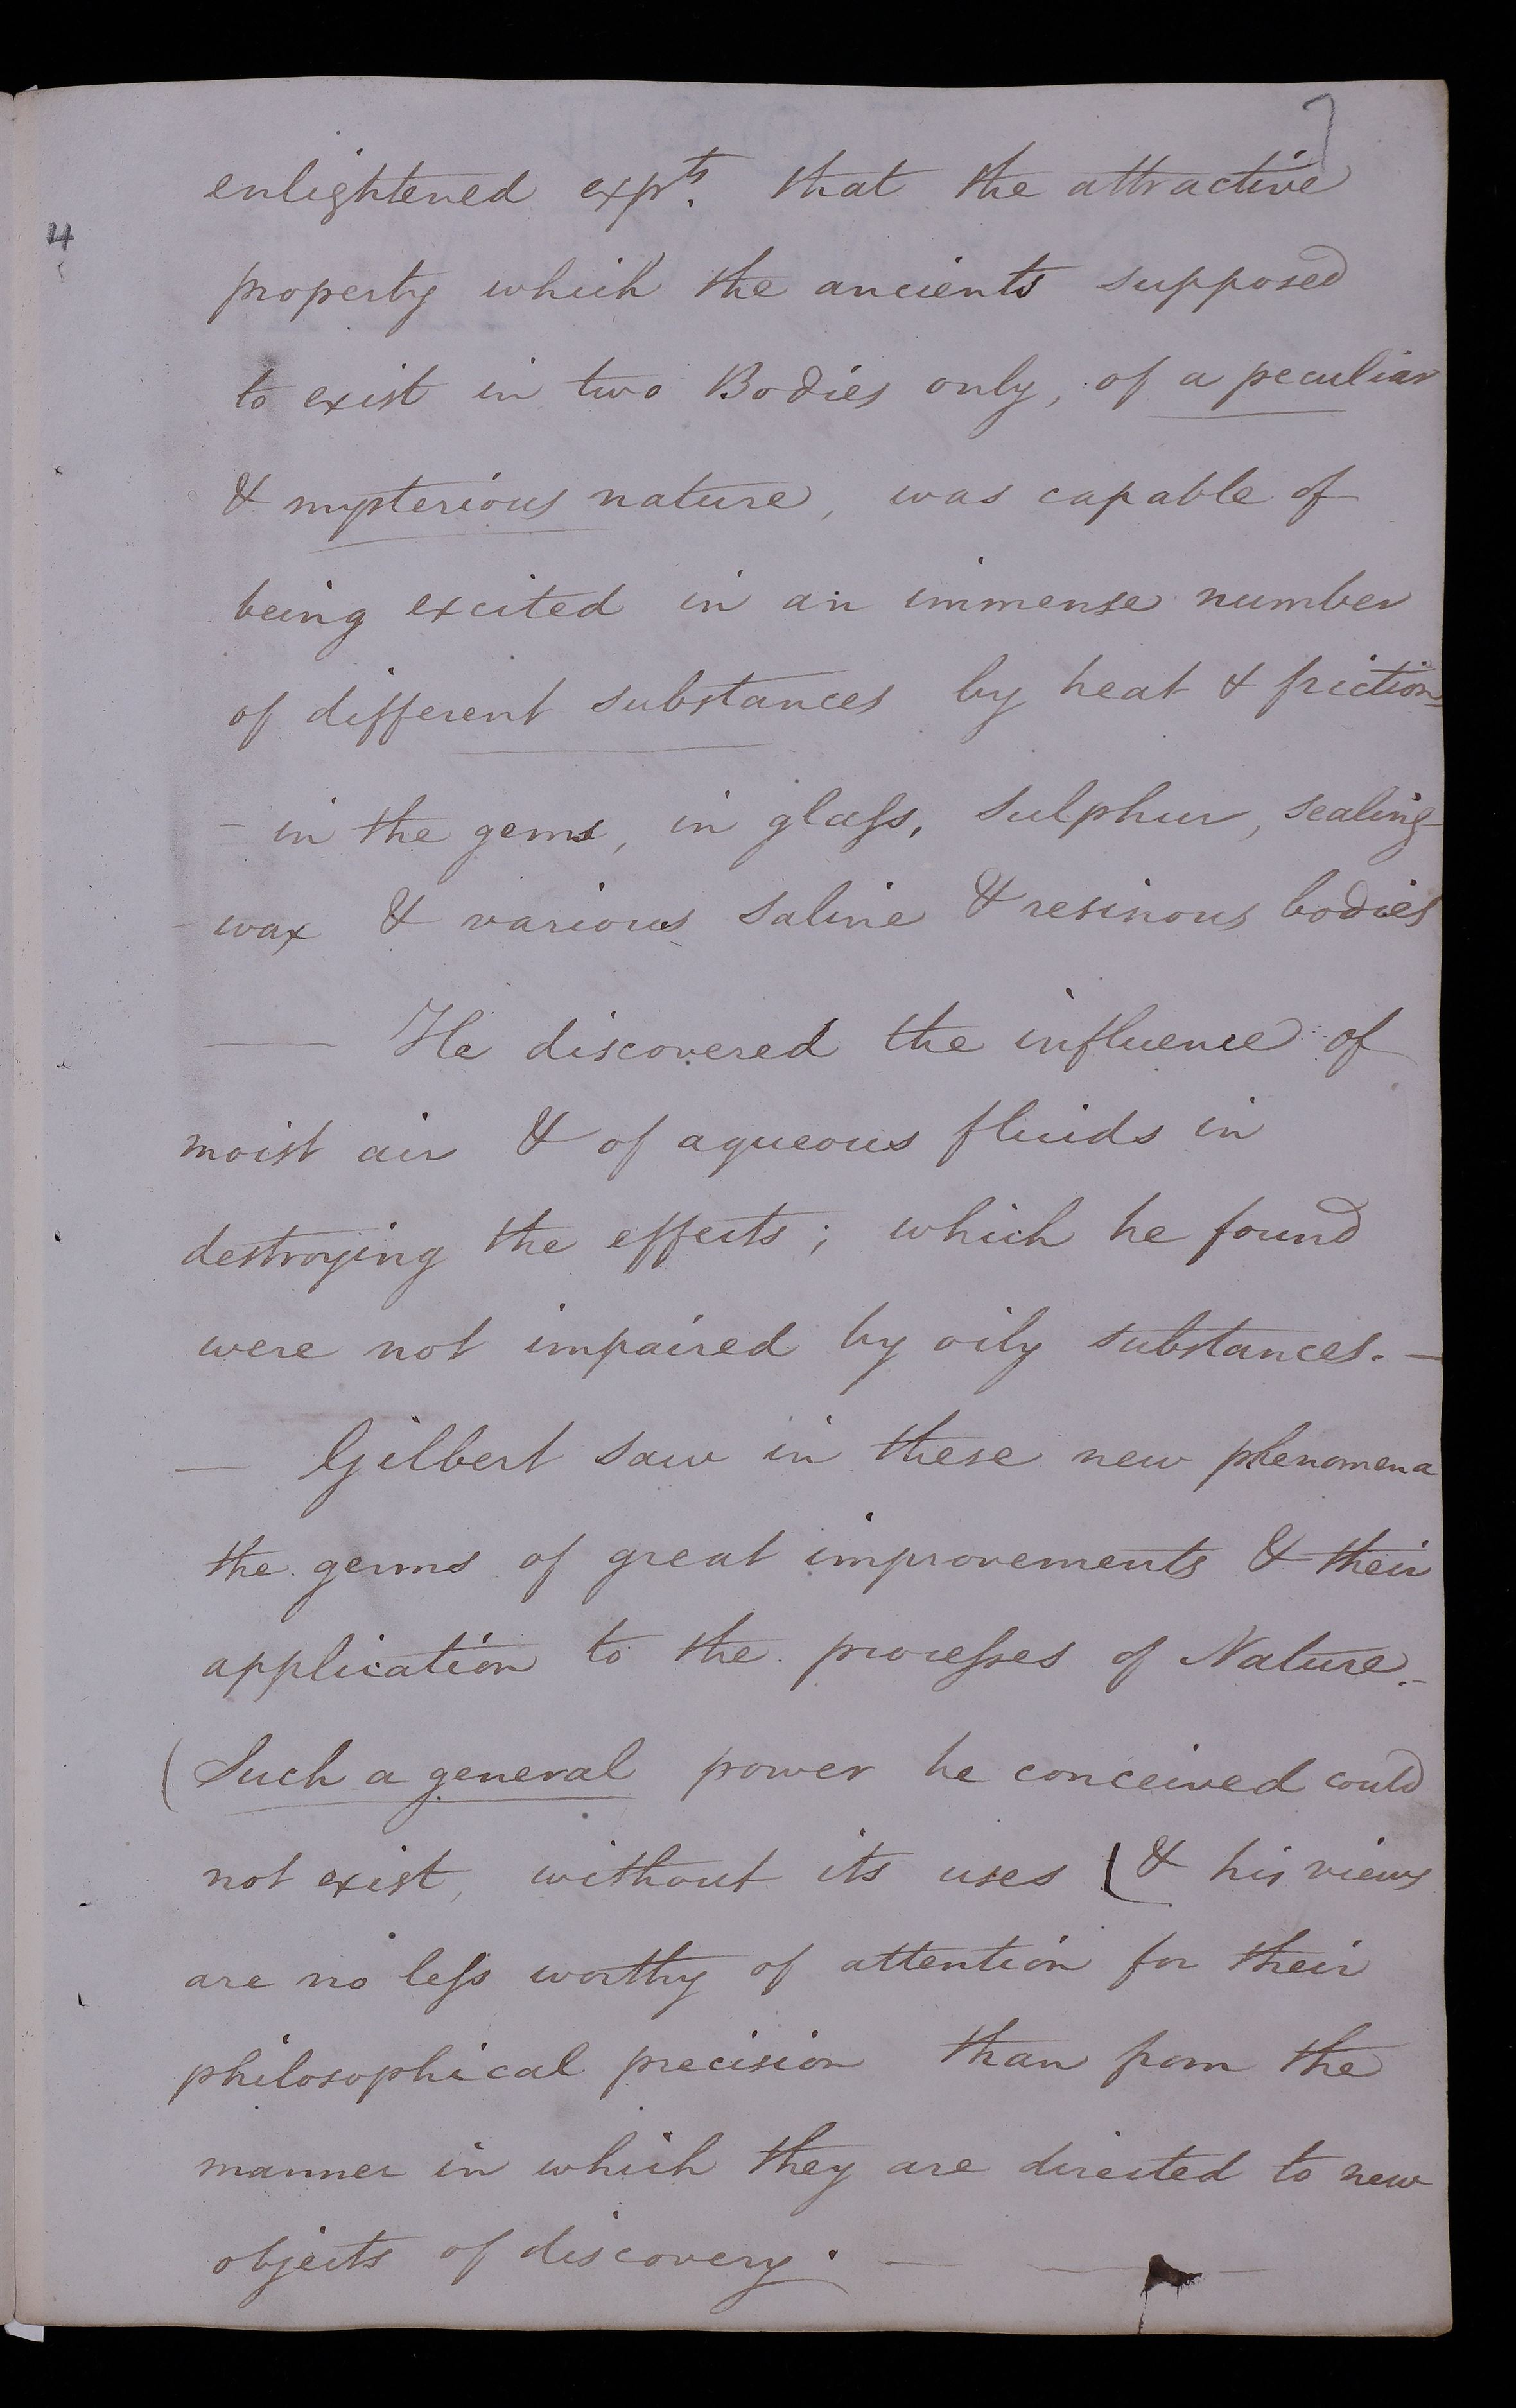 7
enlightened expts. that the attractive
4
property which the ancients supposed
to exist in two Bodies only, of a peculiar
& mysterious nature, was capable of
being excited in an immense number
of different substances by heat & friction
- in the gems, in glass, sulphur, sealing-
wax & various saline & resinous bodies
— He discovered the influence of
moist air & of aqueous fluids in
destroying the effects; which he found
were not impaired by oily substances. —
— Gilbert saw in these new phenomena
the germs of great improvements & their
application to the processes of Nature.-
(Such a general power he conceived could
not exist, without its uses ( & his views
are no less worthy of attention for their
philosophical precision than from the
manner in which they are directed to new
objects of discovery. —